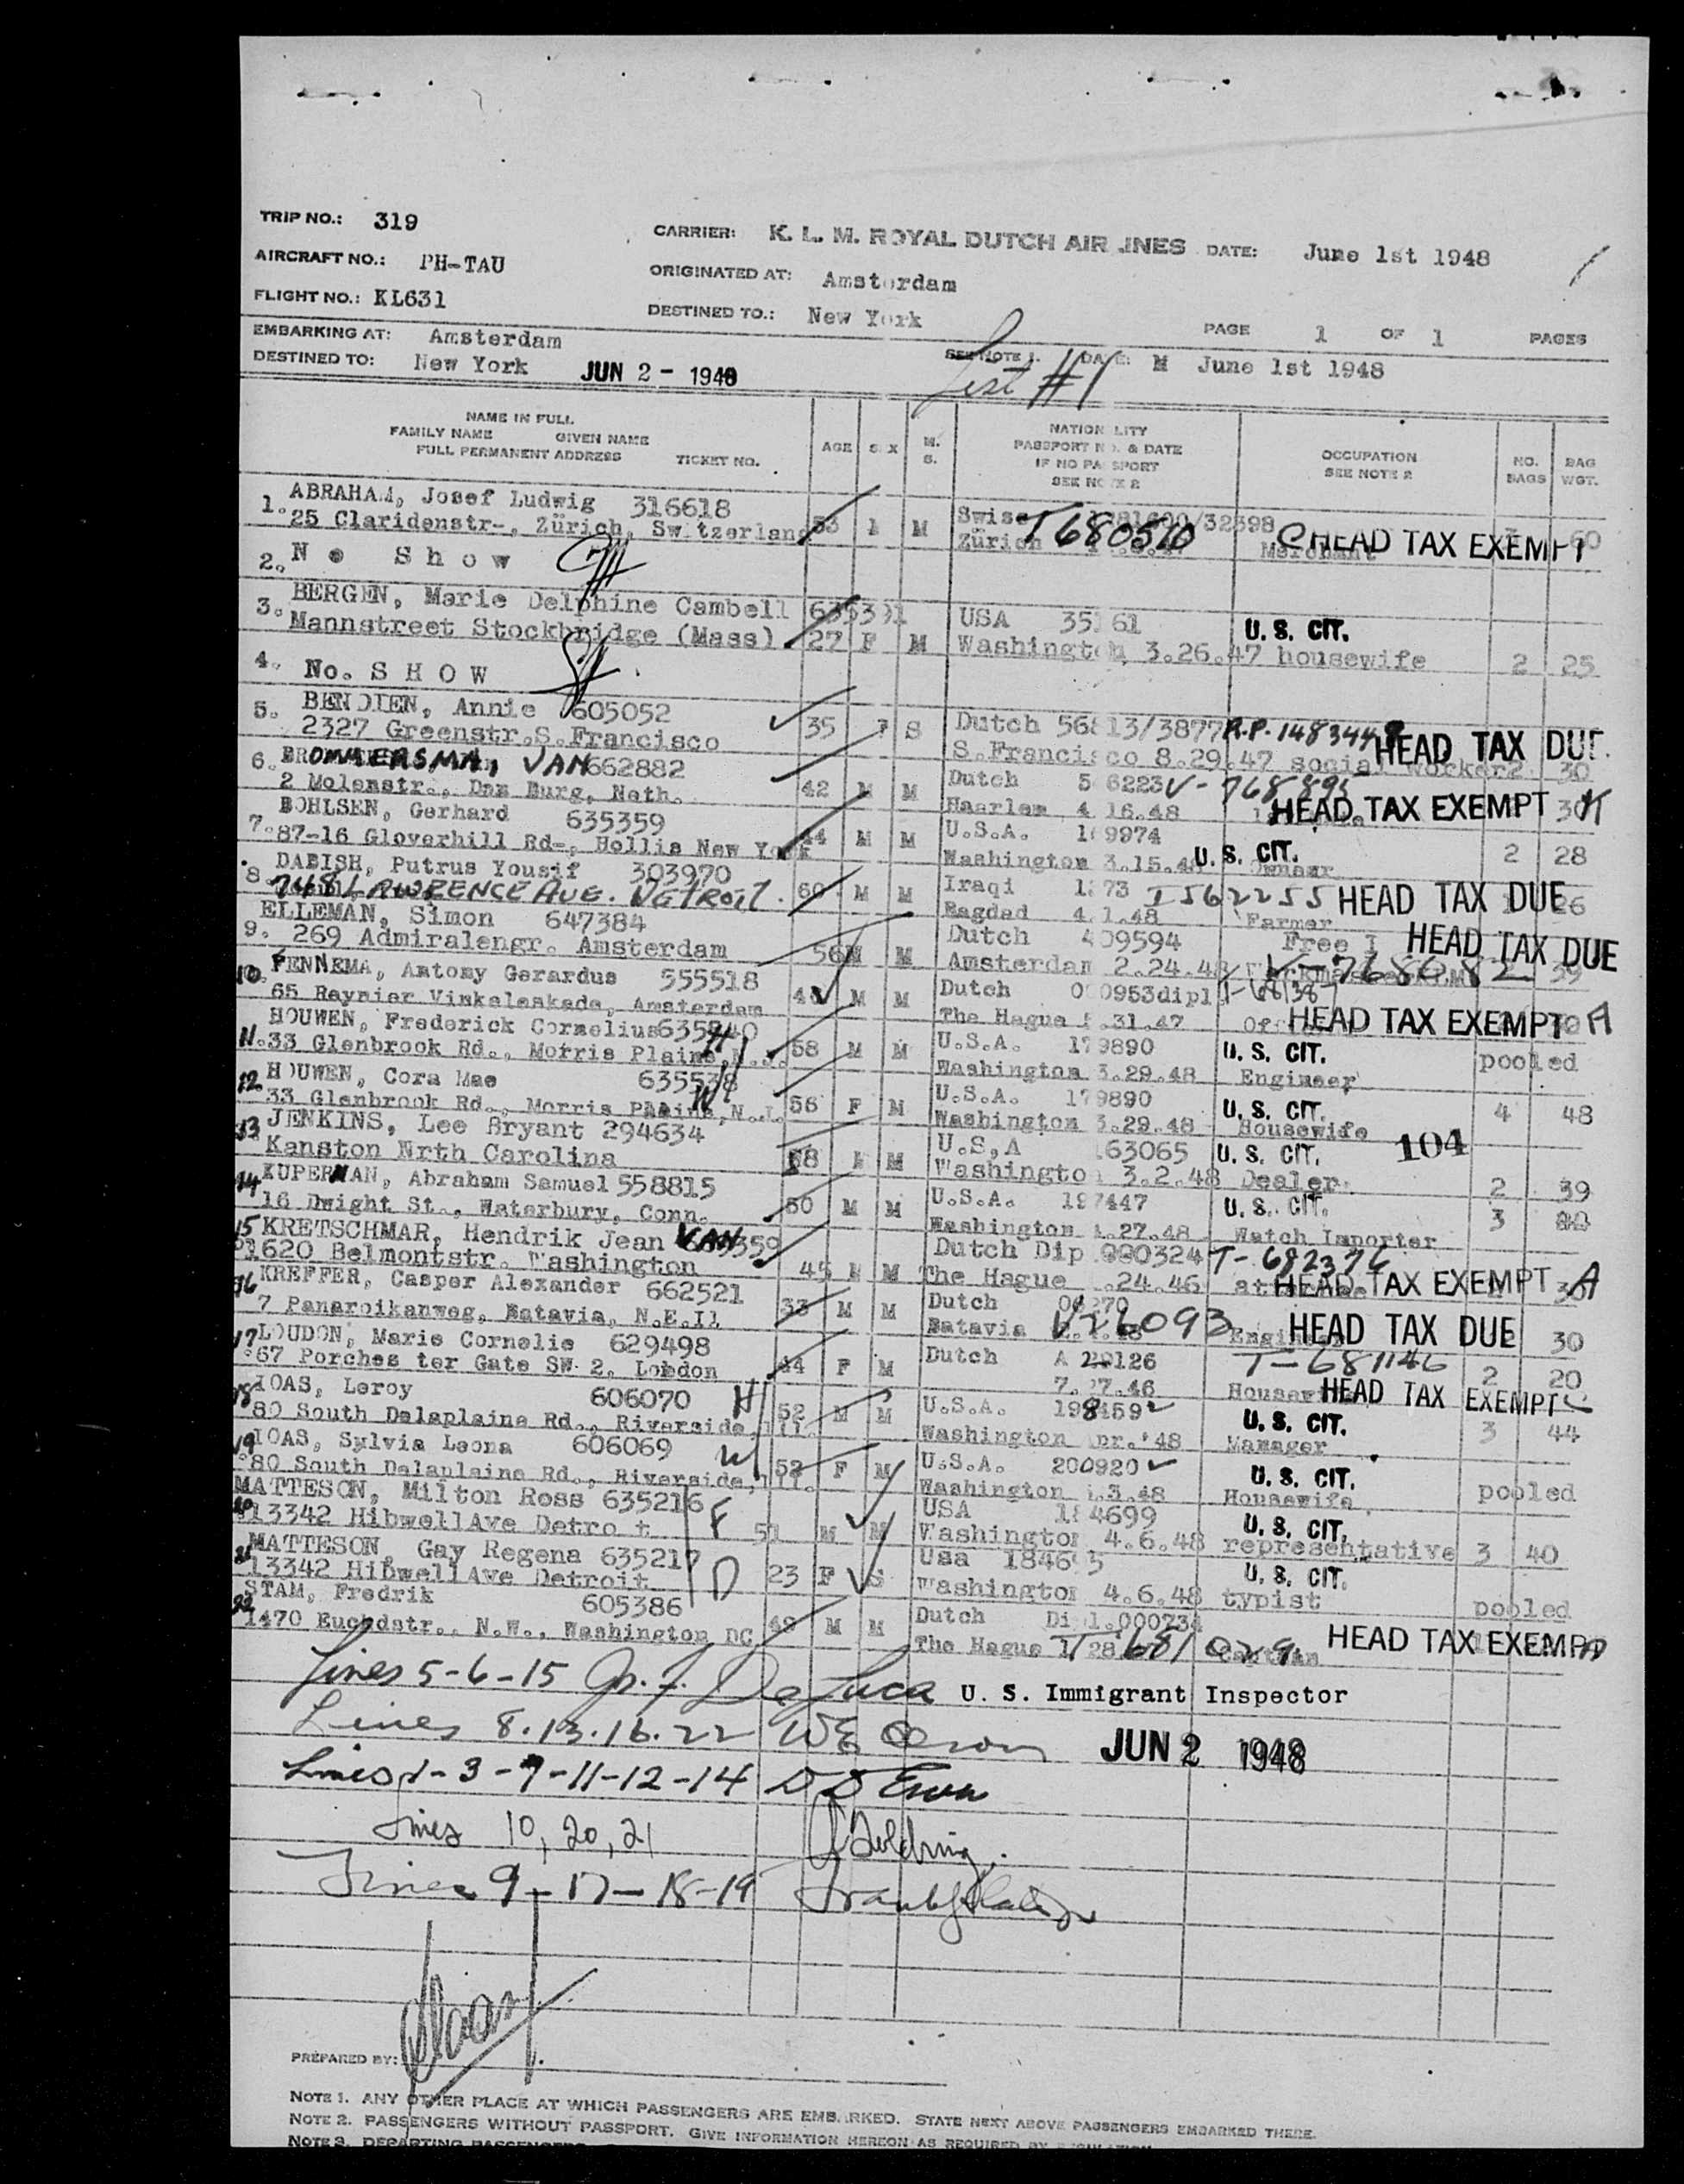 TRIP NO.: 319
CARRIER: K. L. M. ROYAL DUTCH AIR INES DATE: June 1st 1948
AIRCRAFT NO.: PH-TAU
ORIGINATED AT: Amsterdam
FLIGHT NO.: KL631
DESTINED TO.: New York
EMBARKING AT: Amsterdam
PAGE 1 OF 1 PAGES
DESTINED TO: New York JUN 2 - 1948
SEE NOTE 1. DATE: M June 1st 1948
List #1
NAME IN FULL
FAMILY NAME GIVEN NAME
FULL PERMANENT ADDRESS TICKET NO.
AGE SEX M. S.
NATIONALITY
PASSPORT NO. & DATE
IF NO PASSPORT
SEE NOTE 2
OCCUPATION
SEE NOTE 2
NO. BAGS
BAG WGT.
1. ABRAHAM, Josef Ludwig 316618
25 Claridenstr-, Zürich, Switzerland 53 M Swiss /32398 T680510
Zürich Merchant C HEAD TAX EXEMPT 60
2. No Show
3. BERGEN, Marie Delphine Cambell 635391 USA 35 61 U. S. CIT.
Mannstreet Stockbridge (Mass) 27 F M Washington 3.26.47 housewife 2 25
4. No. SHOW
5. BENDIEN, Annie 605052
2327 Greenstr.S.Francisco 35 F S Dutch 56813/3877 R.P. 1483448 HEAD TAX DUE.
S.Francisco 8.29.47 social worker 2 30
6. BROMMERSMA, VAN 662882
2 Molenstr., Den Burg, Neth. 42 M M Dutch 5 6223 V-768895
Haarlem 4.16.48 HEAD TAX EXEMPT 30 K
7. BOHLSEN, Gerhard 635359
87-16 Gloverhill Rd-, Hollis New York 44 M M U.S.A. 1 9974
Washington 3.15.48 U. S. CIT. 2 28
8. DABISH, Putrus Yousif 303970
7481 LAWRENCE AVE. DETROIT. 60 M M Iraqi 1 73 I562255 HEAD TAX DUE 26
Bagdad 4.1.48 Farmer
9. ELLEMAN, Simon 647384
269 Admiralengr. Amsterdam 56 M M Dutch 409594 HEAD TAX DUE
Amsterdam 2.24.48 V-768082 39
10. FENNEMA, Antony Gerardus 555518
65 Reynier Vinkeleskade, Amsterdam M M Dutch 0 0953dipl
The Hague .31.47 HEAD TAX EXEMPT A
11. HOUWEN, Frederick Cornelius 635540 H
33 Glenbrook Rd., Morris Plains, N.J. 58 M M U.S.A. 179890 U. S. CIT. pooled
Washington 3.29.48 Engineer
12. HOUWEN, Cora Mae 635538 W
33 Glenbrook Rd., Morris Plains, N.J. 56 F M U.S.A. 179890 U. S. CIT. 4 48
Washington 3.29.48 Housewife
13 JENKINS, Lee Bryant 294634
Kanston Nrth Carolina 58 M M U.S,A 163065 U. S. CIT. 104
Washington 3.2.48 Dealer 2 39
14 KUPERMAN, Abraham Samuel 558815
16 Dwight St., Waterbury, Conn. 50 M M U.S.A. 197447 U. S. CIT. 3
Washington .27.48 Watch Importer
15 KRETSCHMAR, Hendrik Jean VAN 359
1620 Belmontstr. Washington 45 M M Dutch Dip 000324 T-682376
The Hague .24.46 HEAD TAX EXEMPT A
16 KREFFER, Casper Alexander 662521
7 Panaroikanweg, Batavia, N.E.I1 33 M M Dutch 06270
Batavia V76093 Engineer HEAD TAX DUE 30
17 LOUDON, Marie Cornelie 629498
67 Porches ter Gate SW 2, London 44 F M Dutch A 20126 T-681146 2 20
7. 7.46 HEAD TAX EXEMPT C
18 IOAS, Leroy 606070 H
80 South Delaplaine Rd., Riverside, Ill. 52 M M U.S.A. 198459 U. S. CIT. 3 44
Washington Apr.'48 Manager
19 IOAS, Sylvia Leona 606069 W
80 South Delaplaine Rd., Riverside, Ill. 52 F M U.S.A. 200920 U. S. CIT. pooled
Washington .3.48 Housewife
20 MATTESON, Milton Ross 635216 F
13342 HibwellAve Detroit 51 M M USA 184699 U. S. CIT.
Washington 4.6.48 representative 3 40
21 MATTESON, Gay Regena 635217 D
13342 HibwellAve Detroit 23 F S Usa 1846 5 U. S. CIT.
Washington 4.6.48 typist pooled
22 STAM, Fredrik 605386
1470 Euchdstr., N.W., Washington DC. 48 M M Dutch Dipl.000234
The Hague HEAD TAX EXEMPT
Lines 5-6-15 De Luca U. S. Immigrant Inspector
Lines 8.13.16.22
JUN 2 1948
Lines 1-3-7-11-12-14
Lines 10, 20, 21
Lines 9-17-18-19
PREPARED BY:
NOTE 1. ANY OTHER PLACE AT WHICH PASSENGERS ARE EMBARKED. STATE NEXT ABOVE PASSENGERS EMBARKED THERE.
NOTE 2. PASSENGERS WITHOUT PASSPORT. GIVE INFORMATION HEREON AS REQUIRED BY
NOTE 3. DEPARTING PASSENGERS